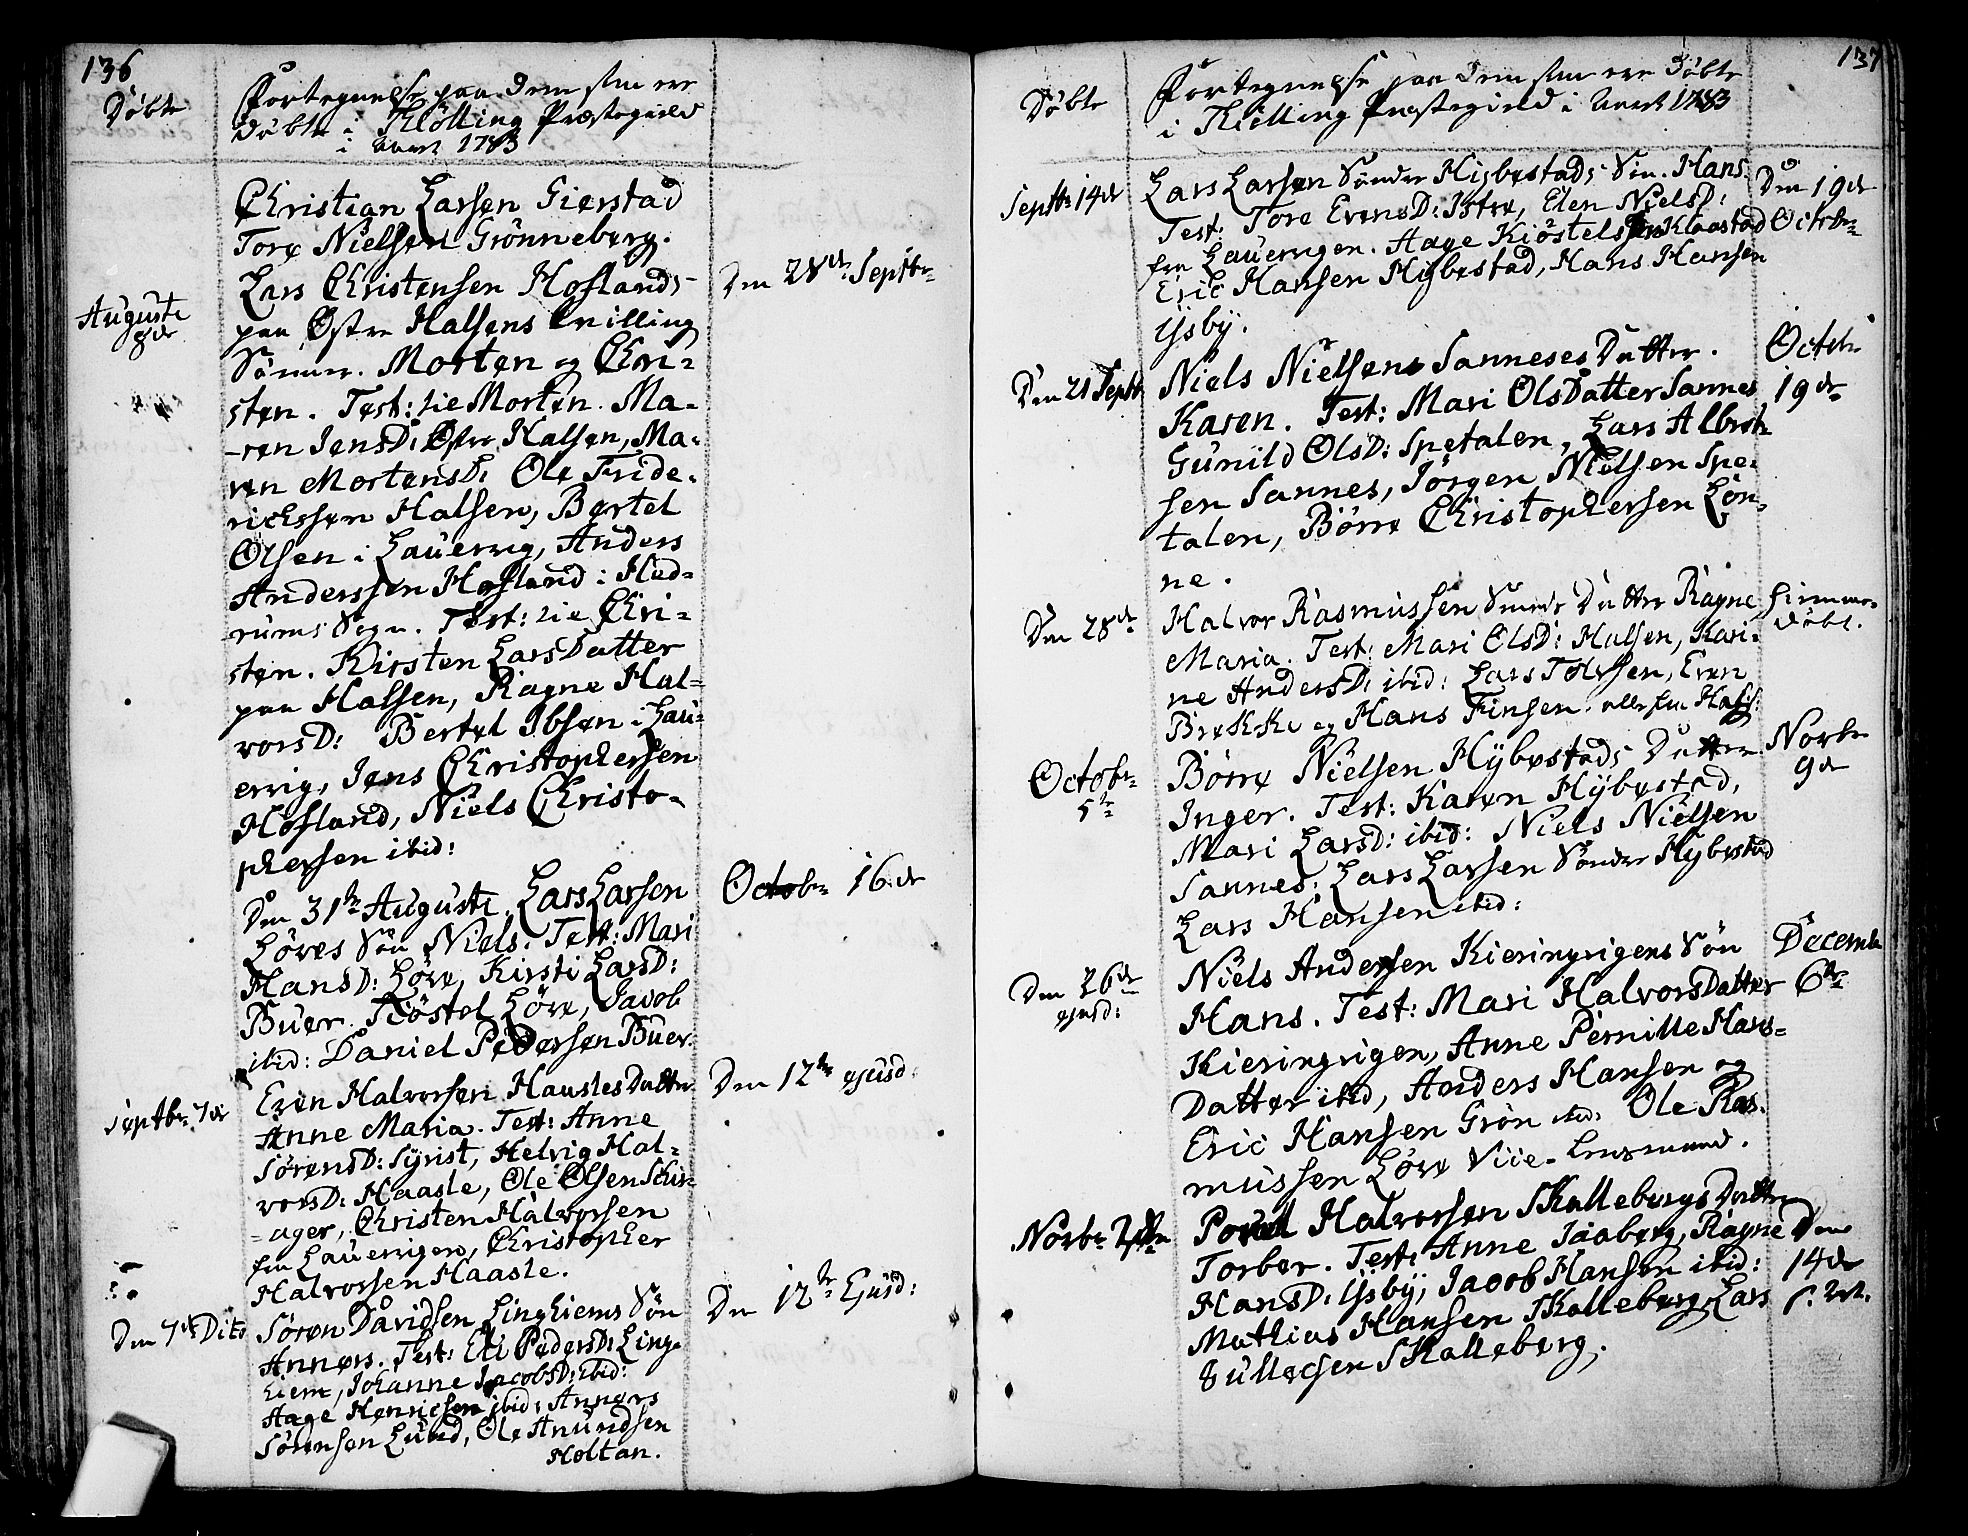 136
Döbte
Fortegnelse paa dem som ere
döbte i Kiölling Præstegield
i Aaret 1783
Christian Larsen Gierstad
Tore Nielsen Grönneberg.
Lars Christensen Hoflands
Den 28de Septbr
Auguste
8de
paa Østre Halsens tvilling
Sönner. Morten og Chri-
sten. Test: tie Morten. Ma-
-ren JensD: Østre Halsen, Ma-
ren MortensD: Ole Fride-
richssen Halsen, Bertel
Olsen i Lauervig, Anders
Anderssen Hofland i Hed-
rums Sogn. Test: tie Chri-
sten. Kirsten LarsDatter
paa Halsen, Ragne Hal-
vorsD: Bertel Ibsen i Lau-
ervig, Jens Christophersen
Hofland, Niels Christo-
phersen ibid:
Den 31te Auguste. Lars Larsen
Octobr 16de
Löves Sön Niels. Test: Mari
HansD: Löve, Kirsti LarsD:
Buer. Kiöstel Löve, Jacob
ibid: Daniel Pedersen Buer.
Septbr 7de
Even Halvorsen Haasles Datter
Den 12te ejusd:
Anne Maria. Test: Anne
SörensD: Syrist, Helvig Hal-
vorsD: Haasle, Ole Olsen Schir-
-ager, Christen Halvorsen
fra Lauervigen, Christopher
Halvorsen Haasle.
Den 7de Dito
Sören Davidsen Linghiems Sön
Den 12te Ejusd:
Anners. Test: Eli PedersD: Ling-
hiem, Johanne JacobsD: ibid:
Aage Henricsen ibid: Anners
Sörensen Lund, Ole Anundsen
Holtan.
137
Döbte
Fortegnelse paa dem som ere döbte
i Kiölling Præstegield i Aaret 1783
Septbr 14de
Lars Larsen Sönder Hybestads Sön. Hans.
Den 19de
Octobr
Test: Tore EvensD: Istre, Elen NielsD:
fra Lauervigen. Aage Kiöstelsen Klaastad
Eric Hansen Hybestad, Hans Hansen
Ysby.
Den 21 Septbr
Niels Nielsens Sanneses Datter.
Octobr
19de
Karen. Test: Mari OlsDatter Sannes
Gunild OlsD: Spetalen, Lars Albret-
sen Sannes, Jörgen Nielsen Spe-
talen, Börre Christophersen Lön-
ne.
Den 28de
Halvor Rasmussen Datter Ragne
hiemme-
döbt.
Maria. Test: Mari OlsD: Halsen, Kari-
ne AndersD: ibid: Lars Tolfsen, Even
Brekke og Hans Finsen. alle fra Hals:
Octobr
5te
Börre Nielsen Hybestads Datter
Novbr
9de
Inger. Test: Karen Hybestad,
Mari LarsD: ibid: Niels Nielsen
Sannes, Lars Larsen Sönder Hybestad
Lars Hansen ibid:
Den 26de
ejusd:
Niels Andersen Kieringvigens Sön
Decembr
6te
Hans. Test: Mari HalvorsDatter
Kieringvigen, Anne Pernille Hans-
Datter ibid, Anders Hansen og
Eric Hansen Grön ibid: Ole Ras-
mussen Löve Vice-Lensmand.
Novbr 2den
Povel Halvorsen Skallebergs Datter
Torber. Test: Anne Jaaberg, Ragne
Den
14de
HansD: Ysby, Jacob Hansen ibid:
Mathias Hansen Skalleberg, Lars
Gullacsen Skalleberg.